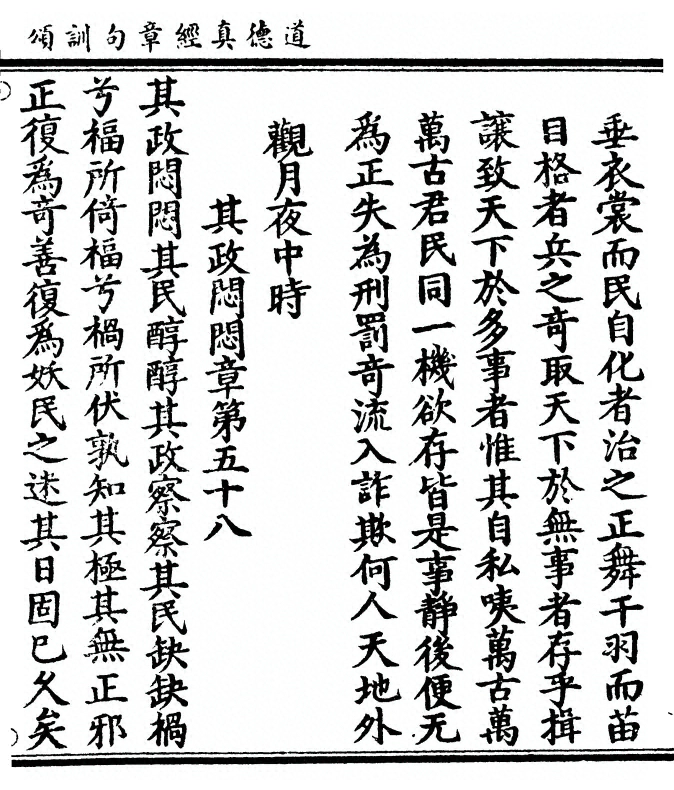 道德真經章句訓頌
垂衣裳而民自化者治之正舞干羽而苗
目格者兵之奇取天下於無事者存乎揖
讓致天下於多事者惟其自私咦萬古萬
萬古君民同一機欲存皆是事靜後便无
爲正失為刑罰奇流入詐欺何人天地外
觀月夜中時
其政悶悶章第五十八
其政悶悶其民醇醇其政察察其民缺缺禍
兮福所倚福兮禍所伏孰知其極其無正邪
正復爲奇善復爲妖民之迷其日固已久矣